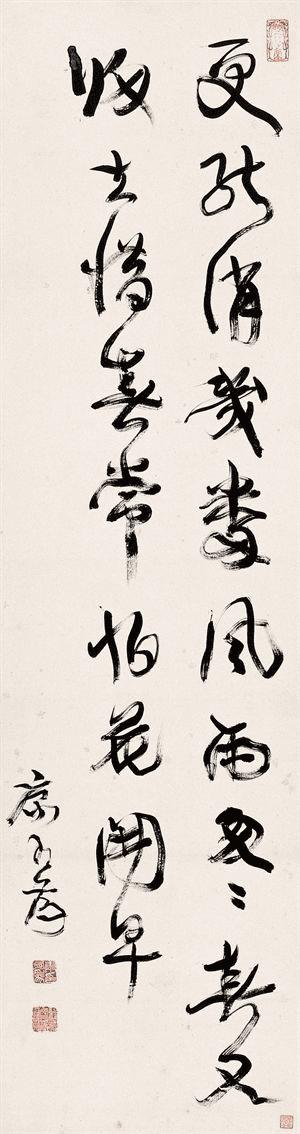 更能消幾番風雨匆〻春又
歸去惜春常怕花開早
康有為